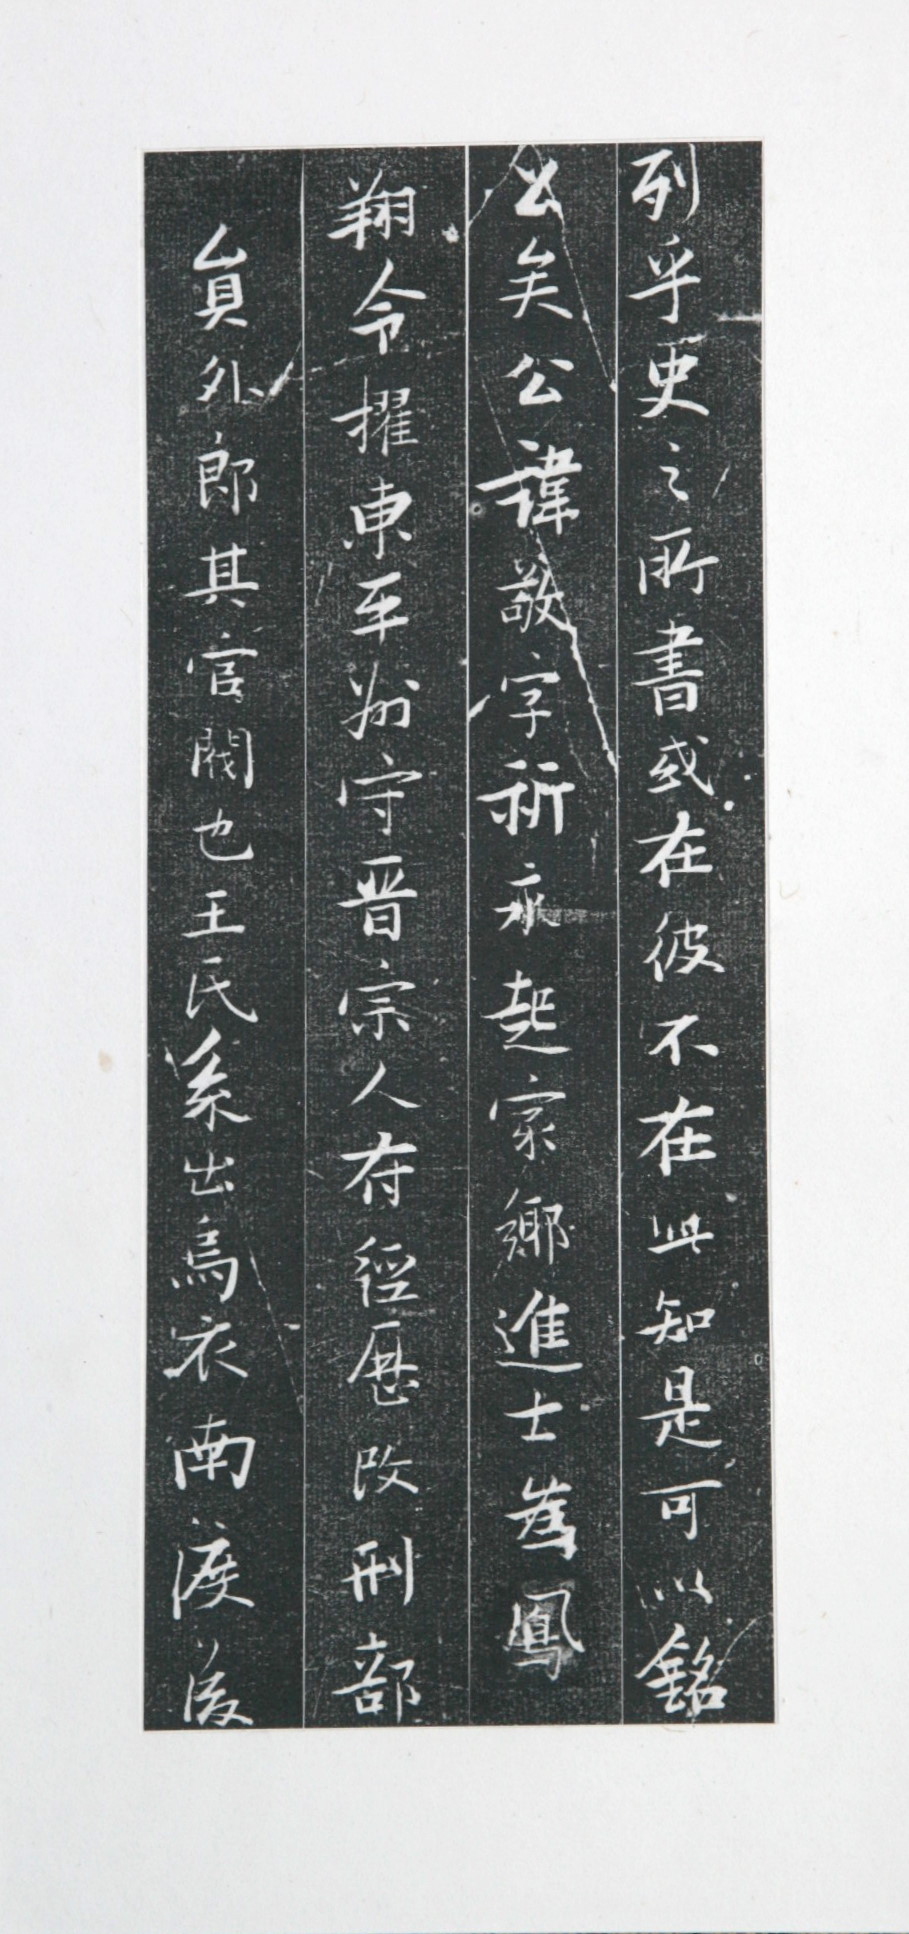 列乎史之所書或在彼不在此知是可以銘
公矣公諱敬字祈永起家鄉進士為鳳
翔令擢東平州守晋宗人府經歷改刑部
員外郎其官閥也王氏系出烏衣南渡後